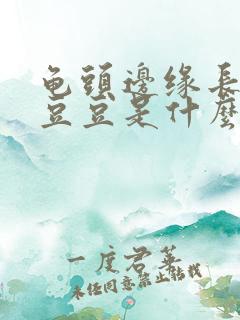 龟頭邊缘長
豆豆是什麼
一度君華
未经同意禁止转载